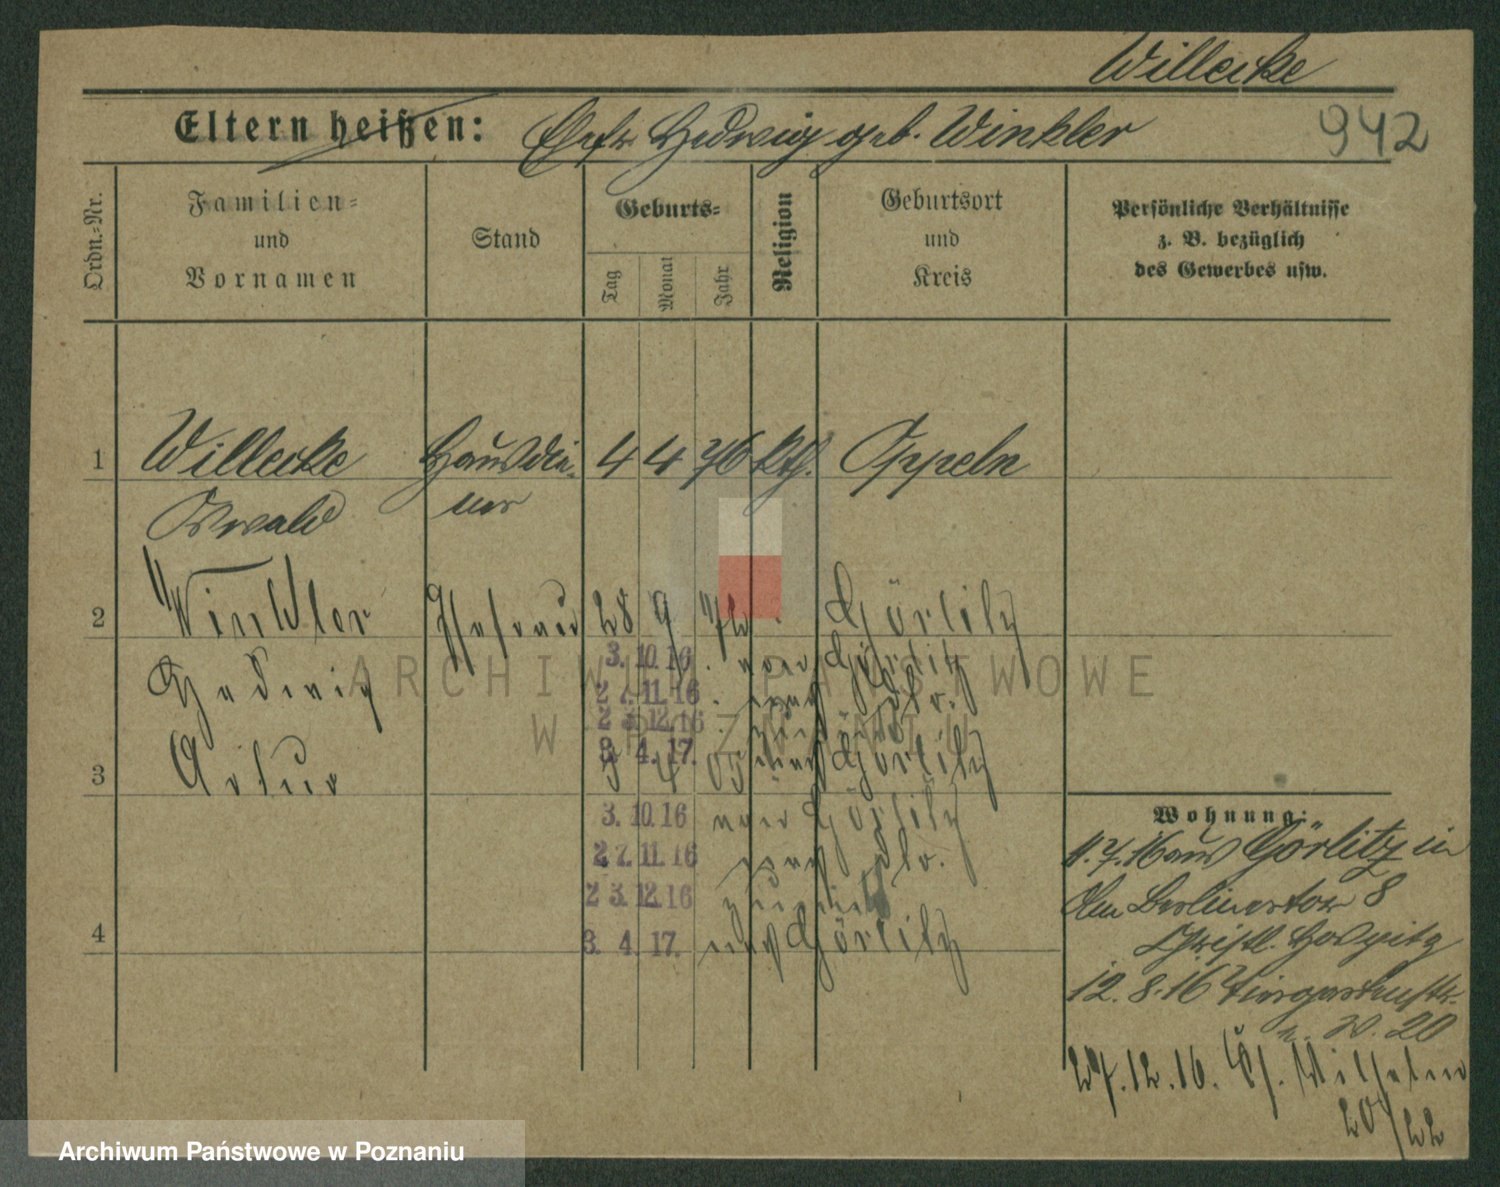 Willecke
Eltern heißen: Hedwig geb. Winkler
942
Ordn.-Nr.
Familien-
und
Vornamen
Stand
Geburts-
Tag
Monat
Jahr
Religion
Geburtsort
und
Kreis
Persönliche Verhältnisse
z. B. bezüglich
des Gewerbes usw.
1 Willecke Hausdie- 4 4 76 kth. Oppeln
Oswald ner
2 Winkler Ehefrau 28 9 72 Görlitz
3.10.16 nach Görlitz
Hedwig
27.11.16
23.12.16
3.4.17. nach Görlitz
3 Artur 5 4 05
3.10.16 nach Görlitz
27.11.16
23.12.16
4 3.4.17. nach Görlitz
Wohnung:
11.7.16 aus Görlitz in
Am Berlinertor 8
Christl. Hospitz
12.8.16 Tiergartenstr.
20
27.12.16. Wilhelm
20/22
ARCHIWUM PAŃSTWOWE
W POZNANIU
Archiwum Państwowe w Poznaniu